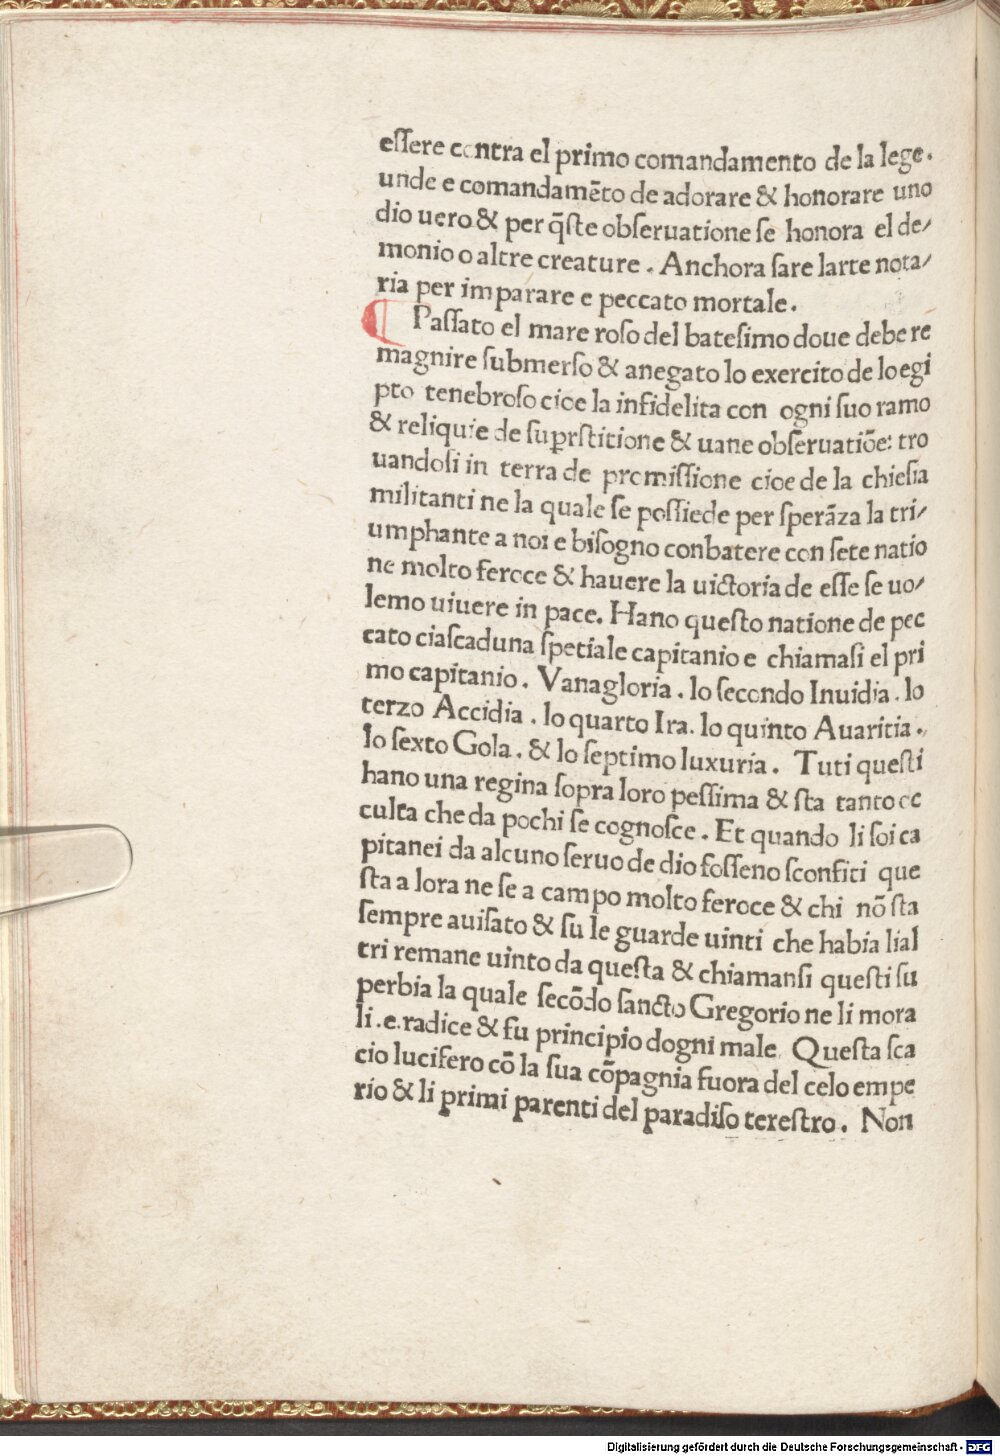 eſſere contra el primo comandamento de la lege.
unde e comandamēto de adorare & honorare uno
dio uero & per q̄ſte obſeruatione ſe honora el de/
monio o altre creature. Anchora ſare larte nota/
ria per imparare e peccato mortale.
Paſſato el mare roſo del bateſimo doue debe re
magnire ſubmerſo & anegato lo exercito de lo egi
pto tenebroſo cioe la infidelita con ogni ſuo ramo
& reliquie de ſuꝑſtitione & uane obſeruatiōe: tro
uandoſi in terra de promiſſione cioe de la chieſia
militanti ne la quale ſe poſſiede per ſperāza la tri/
umphante a noi e biſogno conbatere con ſete natio
ne molto feroce & hauere la uictoria de eſſe ſe uo/
lemo uiuere in pace. Hano queſto natione de pec
cato ciaſcaduna ſpetiale capitanio e chiamaſi el pri
mo capitanio. Vanagloria. lo ſecondo Inuidia. lo
terzo Accidia. lo quarto Ira. lo quinto Auaritia.
lo ſexto Gola. & lo ſeptimo luxuria. Tuti queſti
hano una regina ſopra loro peſſima & ſta tanto oc
culta che da pochi ſe cognoſce. Et quando li ſoi ca
pitanei da alcuno ſeruo de dio foſſeno ſconfiti que
ſta a lora ne ſe a campo molto feroce & chi nō ſta
ſempre auiſato & ſu le guarde uinti che habia lial
tri remane uinto da queſta & chiamanſi queſti ſu
perbia la quale ſecōdo ſancto Gregorio ne li mora
li .e. radice & fu principio dogni male. Queſta ſca
cio lucifero cō la sua cōpagnia fuora del celo empe
rio & li primi parenti del paradiſo tereſtro. Non
Digitalisierung gefördert durch die Deutsche Forschungsgemeinschaft - DFG